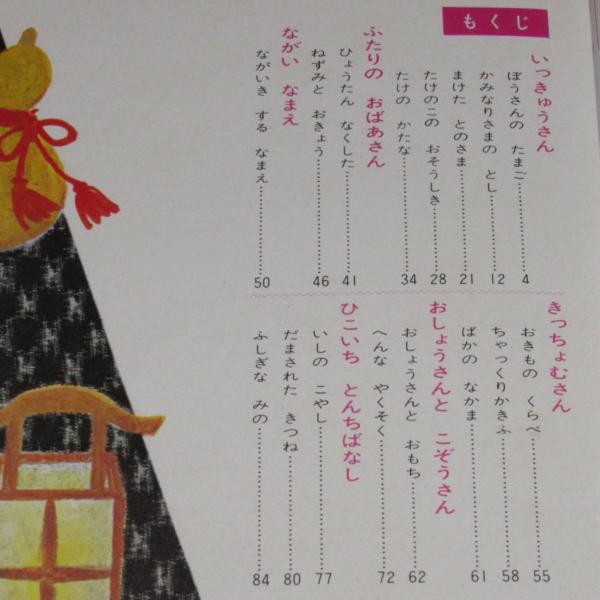 もくじ
いっきゅうさん
ぼうさんの たまご 4
かみなりさまの とし 12
まけた とのさま 21
たけのこの おそうしき 28
たけの かたな 34
ふたりの おばあさん
ひょうたん なくした 41
ねずみと おきょう 46
ながい なまえ
ながいき する なまえ 50
きっちょむさん
おきもの くらべ 55
ちゃっくりかきふ 58
ばかの なかま 61
おしょうさんと こぞうさん
おしょうさんと おもち 62
へんな やくそく 72
ひこいち とんちばなし
いしの こやし 77
だまされた きつね 80
ふしぎな みの 84